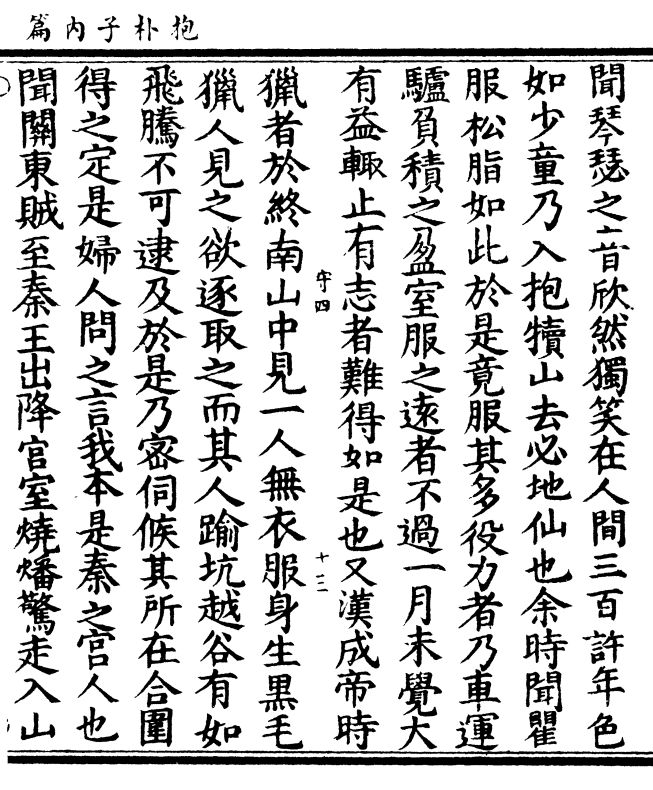 抱朴子內篇
聞琴瑟之音欣然獨笑在人間三百許年色
如少童乃入抱犢山去必地仙也余時聞瞿
服松脂如此於是竟服其多役力者乃車運
驢負積之盈室服之遠者不過一月未覺大
有益輙止有志者難得如是也又漢成帝時
守四
十三
獵者於終南山中見一人無衣服身生黑毛
獵人見之欲逐取之而其人踰坑越谷有如
飛騰不可逮及於是乃密伺候其所在合圍
得之定是婦人問之言我本是秦之宮人也
聞關東賊至秦王出降宮室燒燔驚走入山